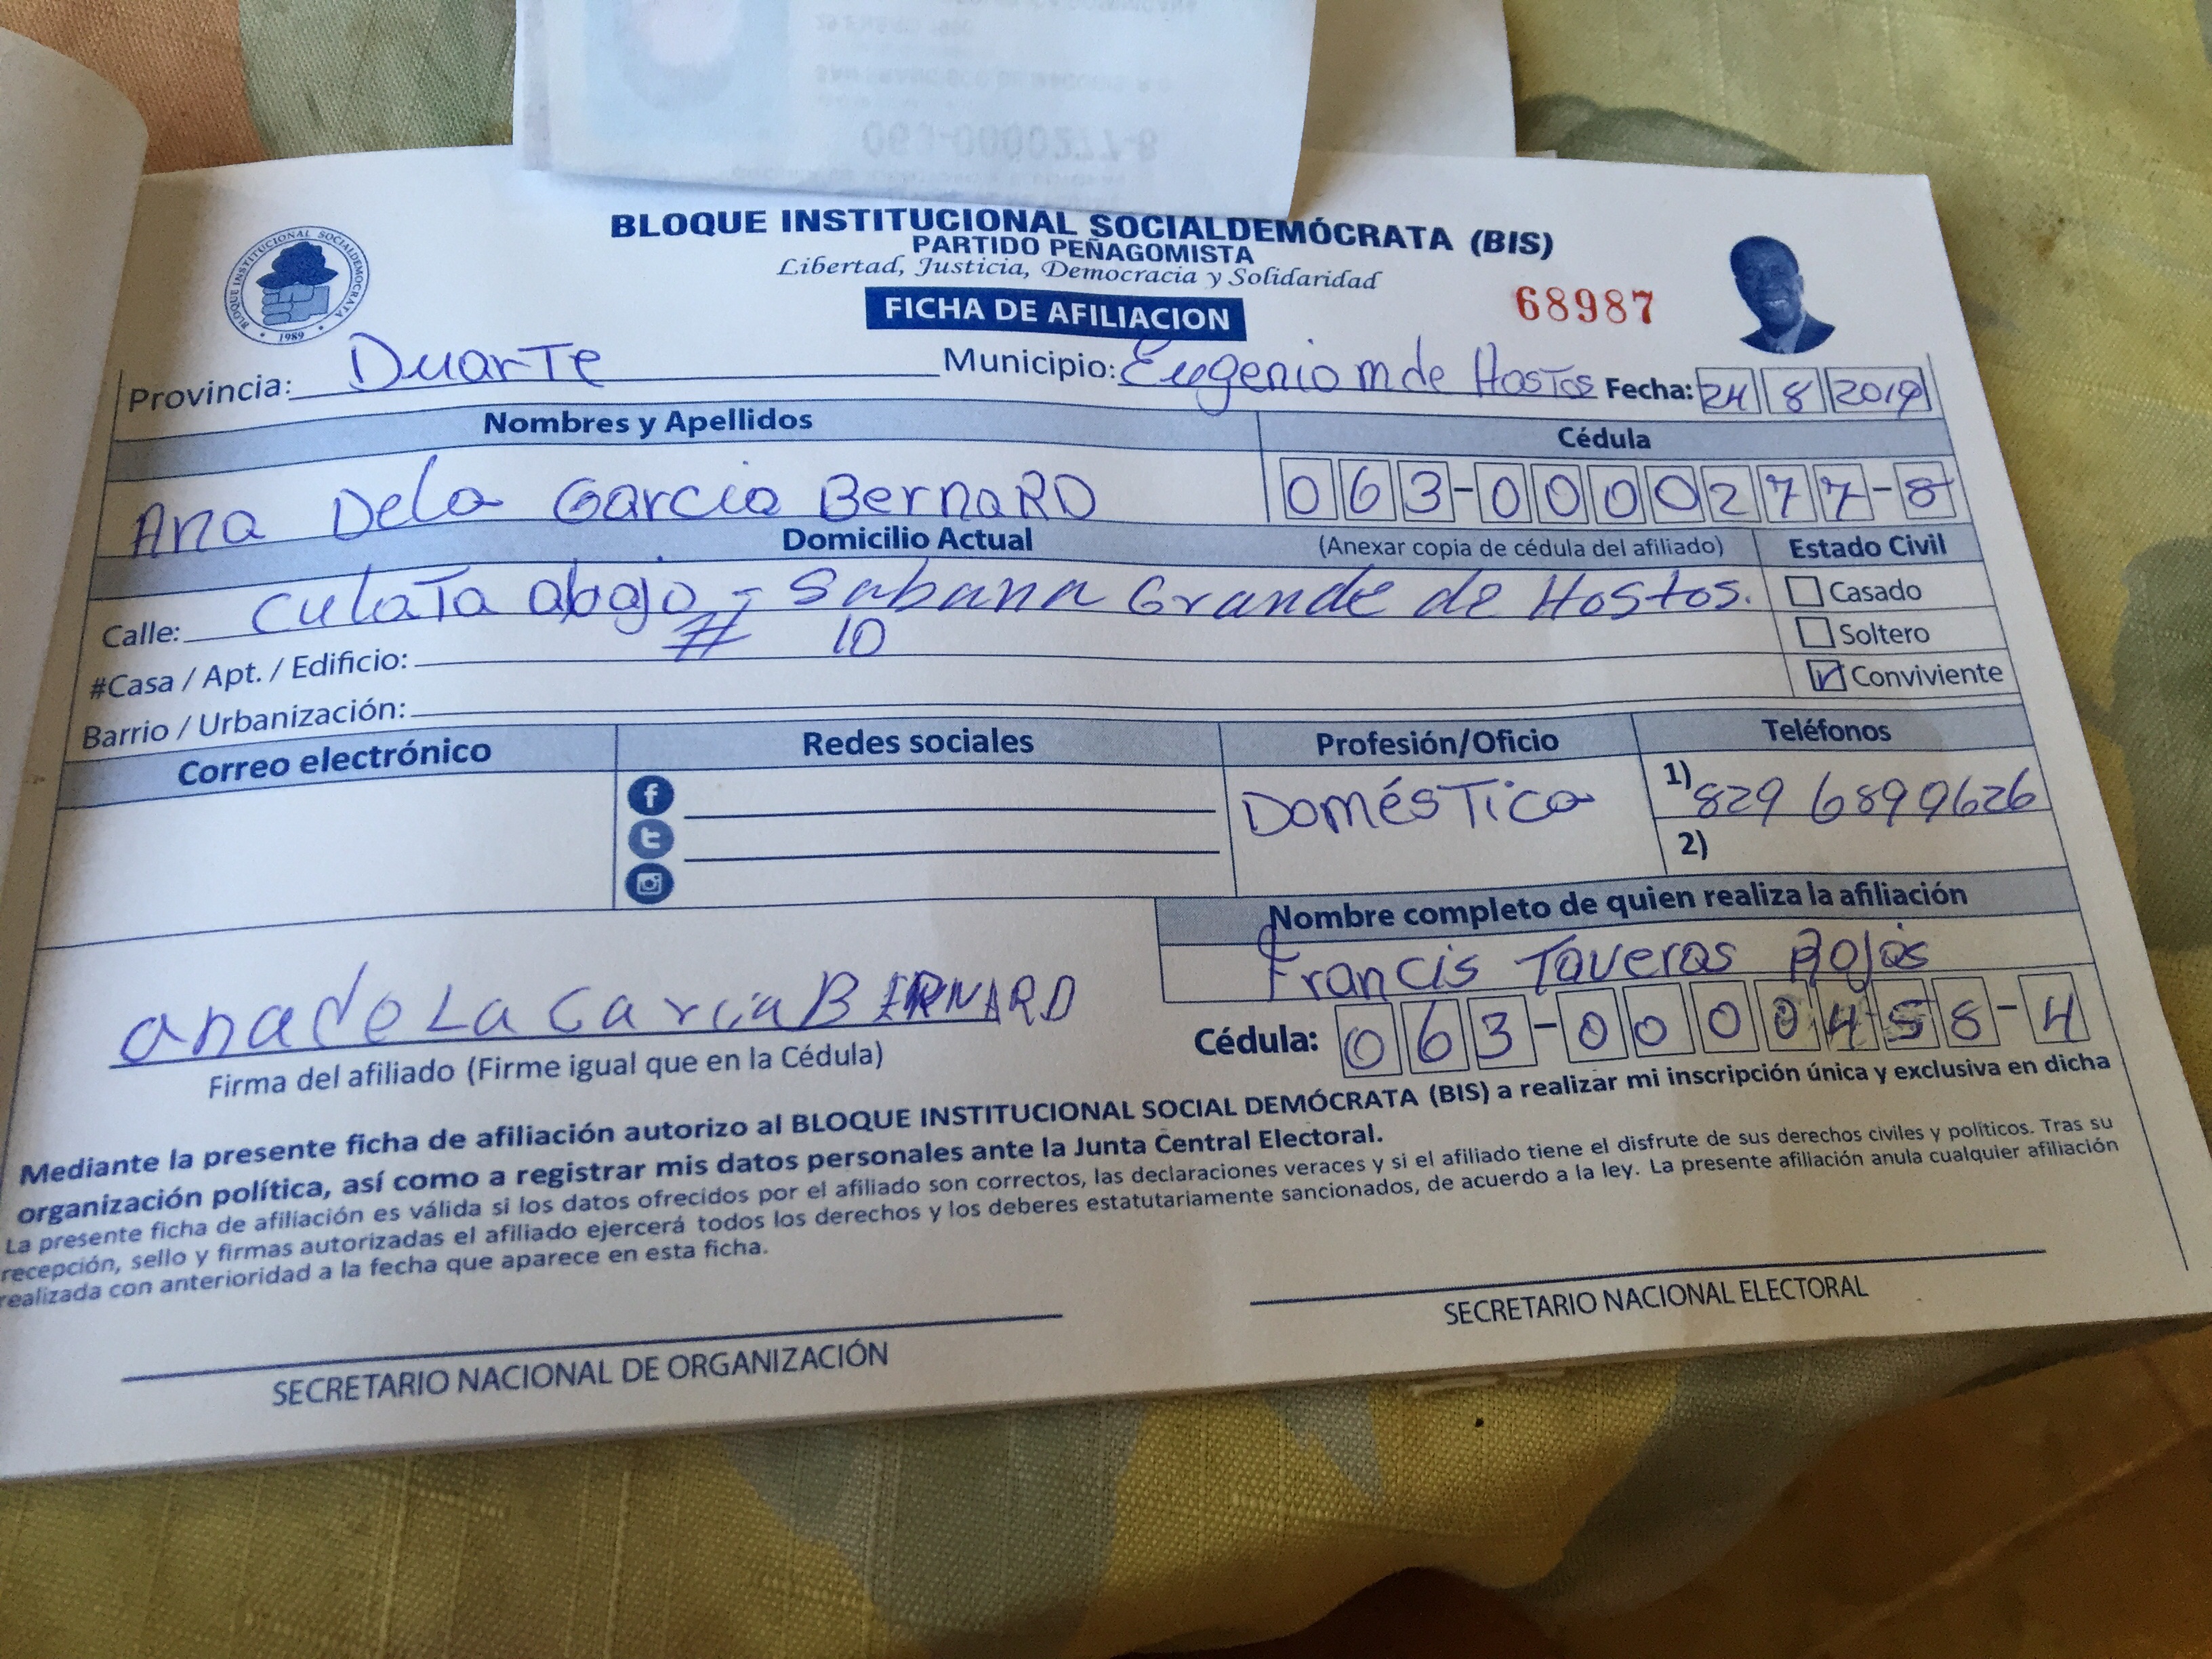 063-0000277-8
BLOQUE INSTITUCIONAL SOCIALDEMÓCRATA (BIS)
PARTIDO PEÑAGOMISTA
Libertad, Justicia, Democracia y Solidaridad
FICHA DE AFILIACION
68987
BLOQUE INSTITUCIONAL SOCIALDEMOCRATA
1989
Provincia: Duarte Municipio: Eugenio m de Hostos Fecha: 24 8 2019
Nombres y Apellidos Cédula
Ana Dela Garcia BernaRD 063-0000277-8
Domicilio Actual (Anexar copia de cédula del afiliado) Estado Civil
Calle: culata abajo - Sabana Grande de Hostos. Casado
# 10 Soltero
#Casa / Apt. / Edificio: Conviviente
Barrio / Urbanización:
Correo electrónico Redes sociales Profesión/Oficio Teléfonos
Doméstica 1) 829 6899626
2)
Nombre completo de quien realiza la afiliación
Francis Taveras Rojas
ana de La Garcia BERNARD
Cédula: 063-0000458-4
Firma del afiliado (Firme igual que en la Cédula)
Mediante la presente ficha de afiliación autorizo al BLOQUE INSTITUCIONAL SOCIAL DEMÓCRATA (BIS) a realizar mi inscripción única y exclusiva en dicha
organización política, así como a registrar mis datos personales ante la Junta Central Electoral.
La presente ficha de afiliación es válida si los datos ofrecidos por el afiliado son correctos, las declaraciones veraces y si el afiliado tiene el disfrute de sus derechos civiles y políticos. Tras su
recepción, sello y firmas autorizadas el afiliado ejercerá todos los derechos y los deberes estatutariamente sancionados, de acuerdo a la ley. La presente afiliación anula cualquier afiliación
realizada con anterioridad a la fecha que aparece en esta ficha.
SECRETARIO NACIONAL DE ORGANIZACIÓN
SECRETARIO NACIONAL ELECTORAL